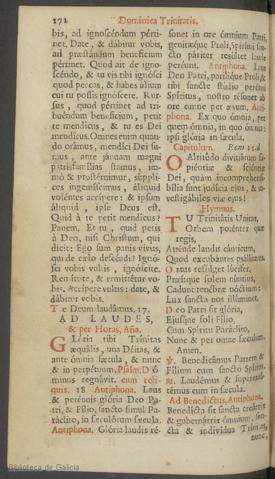 172 Dominica Trinitatis.
bis, ad ignoscendum pérti-
net. Date, & dábitur vobis,
ad præstándum beneficium
pértinet. Quod ait de igno-
scéndo, & tu vis tibi ignósci
quod peccas, & habes álium
cui tu possis ignóscere. Rur-
sus, quod pértinet ad tri-
buéndum beneficium, petit
te mendícus, & tu es Dei
mendícus. Omnes enim quan-
do orámus, mendíci Dei su-
mus, ante jánuam magni
patrisfamílias stamus, im-
mò & prostérnimur, súppli-
ces ingemíscimus, áliquid
volentes accípere: & ipsum
áliquid, ipse Deus est.
Quid à te petit mendícus?
Panem. Et tu, quid petis
à Deo, nisi Christum, qui
dicit: Ego sum panis vivus,
qui de cælo descéndi? Ignó-
sci vobis vultis, ignóscite.
Remíttite, & remittétur vo-
bis. Accípere vultis: date, &
dábitur vobis.
Te Deum laudámus. 17.
AD LAUDES,
& per Horas, Aña.
Glória tibi Trínitas
æquális, una Déitas, &
ante ómnia sæcula, & nunc
& in perpétuum. Psalm. Dó
minus regnávit. cum reli-
quis. 18 Antiphona. Laus
& perénnis glória Deo Pa-
tri, & Fílio, sancto simul Pa-
ráclito, in sæculórum sæcula.
Antiphona. Glória laudis ré-
sonet in ore ómnium Patri,
genitæque Proli, Spirítui san-
cto páriter resúltet laude
perénni. Antiphona. Laus
Deo Patri, parilíque Proli, &
tibi sancte stúdio perénni
Spíritus, nostro résonet ab
ore omne per ævum. Anti-
phona. Ex quo ómnia, per
quem ómnia, in quo ómnia:
ipsi glória in sæcula.
Capitulum. Rom 11. d
O Altitúdo divitiárum sa-
piéntiæ & sciéntiæ
Dei, quàm incomprehensi-
bília sunt judícia ejus, & in-
vestigábiles viæ ejus!
Hymnus.
TU Trinitátis Unitas,
Orbem poténter quæ
regis,
Atténde laudis cánticum,
Quod excubántes psállimus.
Ortus refúlget lúcifer,
Præítque solem núntius,
Cadunt tenébræ nóctium:
Lux sancta nos illúminet.
Deo Patri sit glória,
Ejúsque soli Fílio,
Cum Spíritu Paráclito,
Nunc & per omne sæculum.
Amen.
℣. Benedicámus Patrem &
Fílium cum sancto Spíritu.
℟. Laudémus & superexal-
témus eum in sæcula.
Ad Benedictus, Antiphona.
Benedícta sit sancta creátrix
& gubernátrix ómnium, san-
cta & indivídua Trínitas,
nunc,
Biblioteca de Galicia